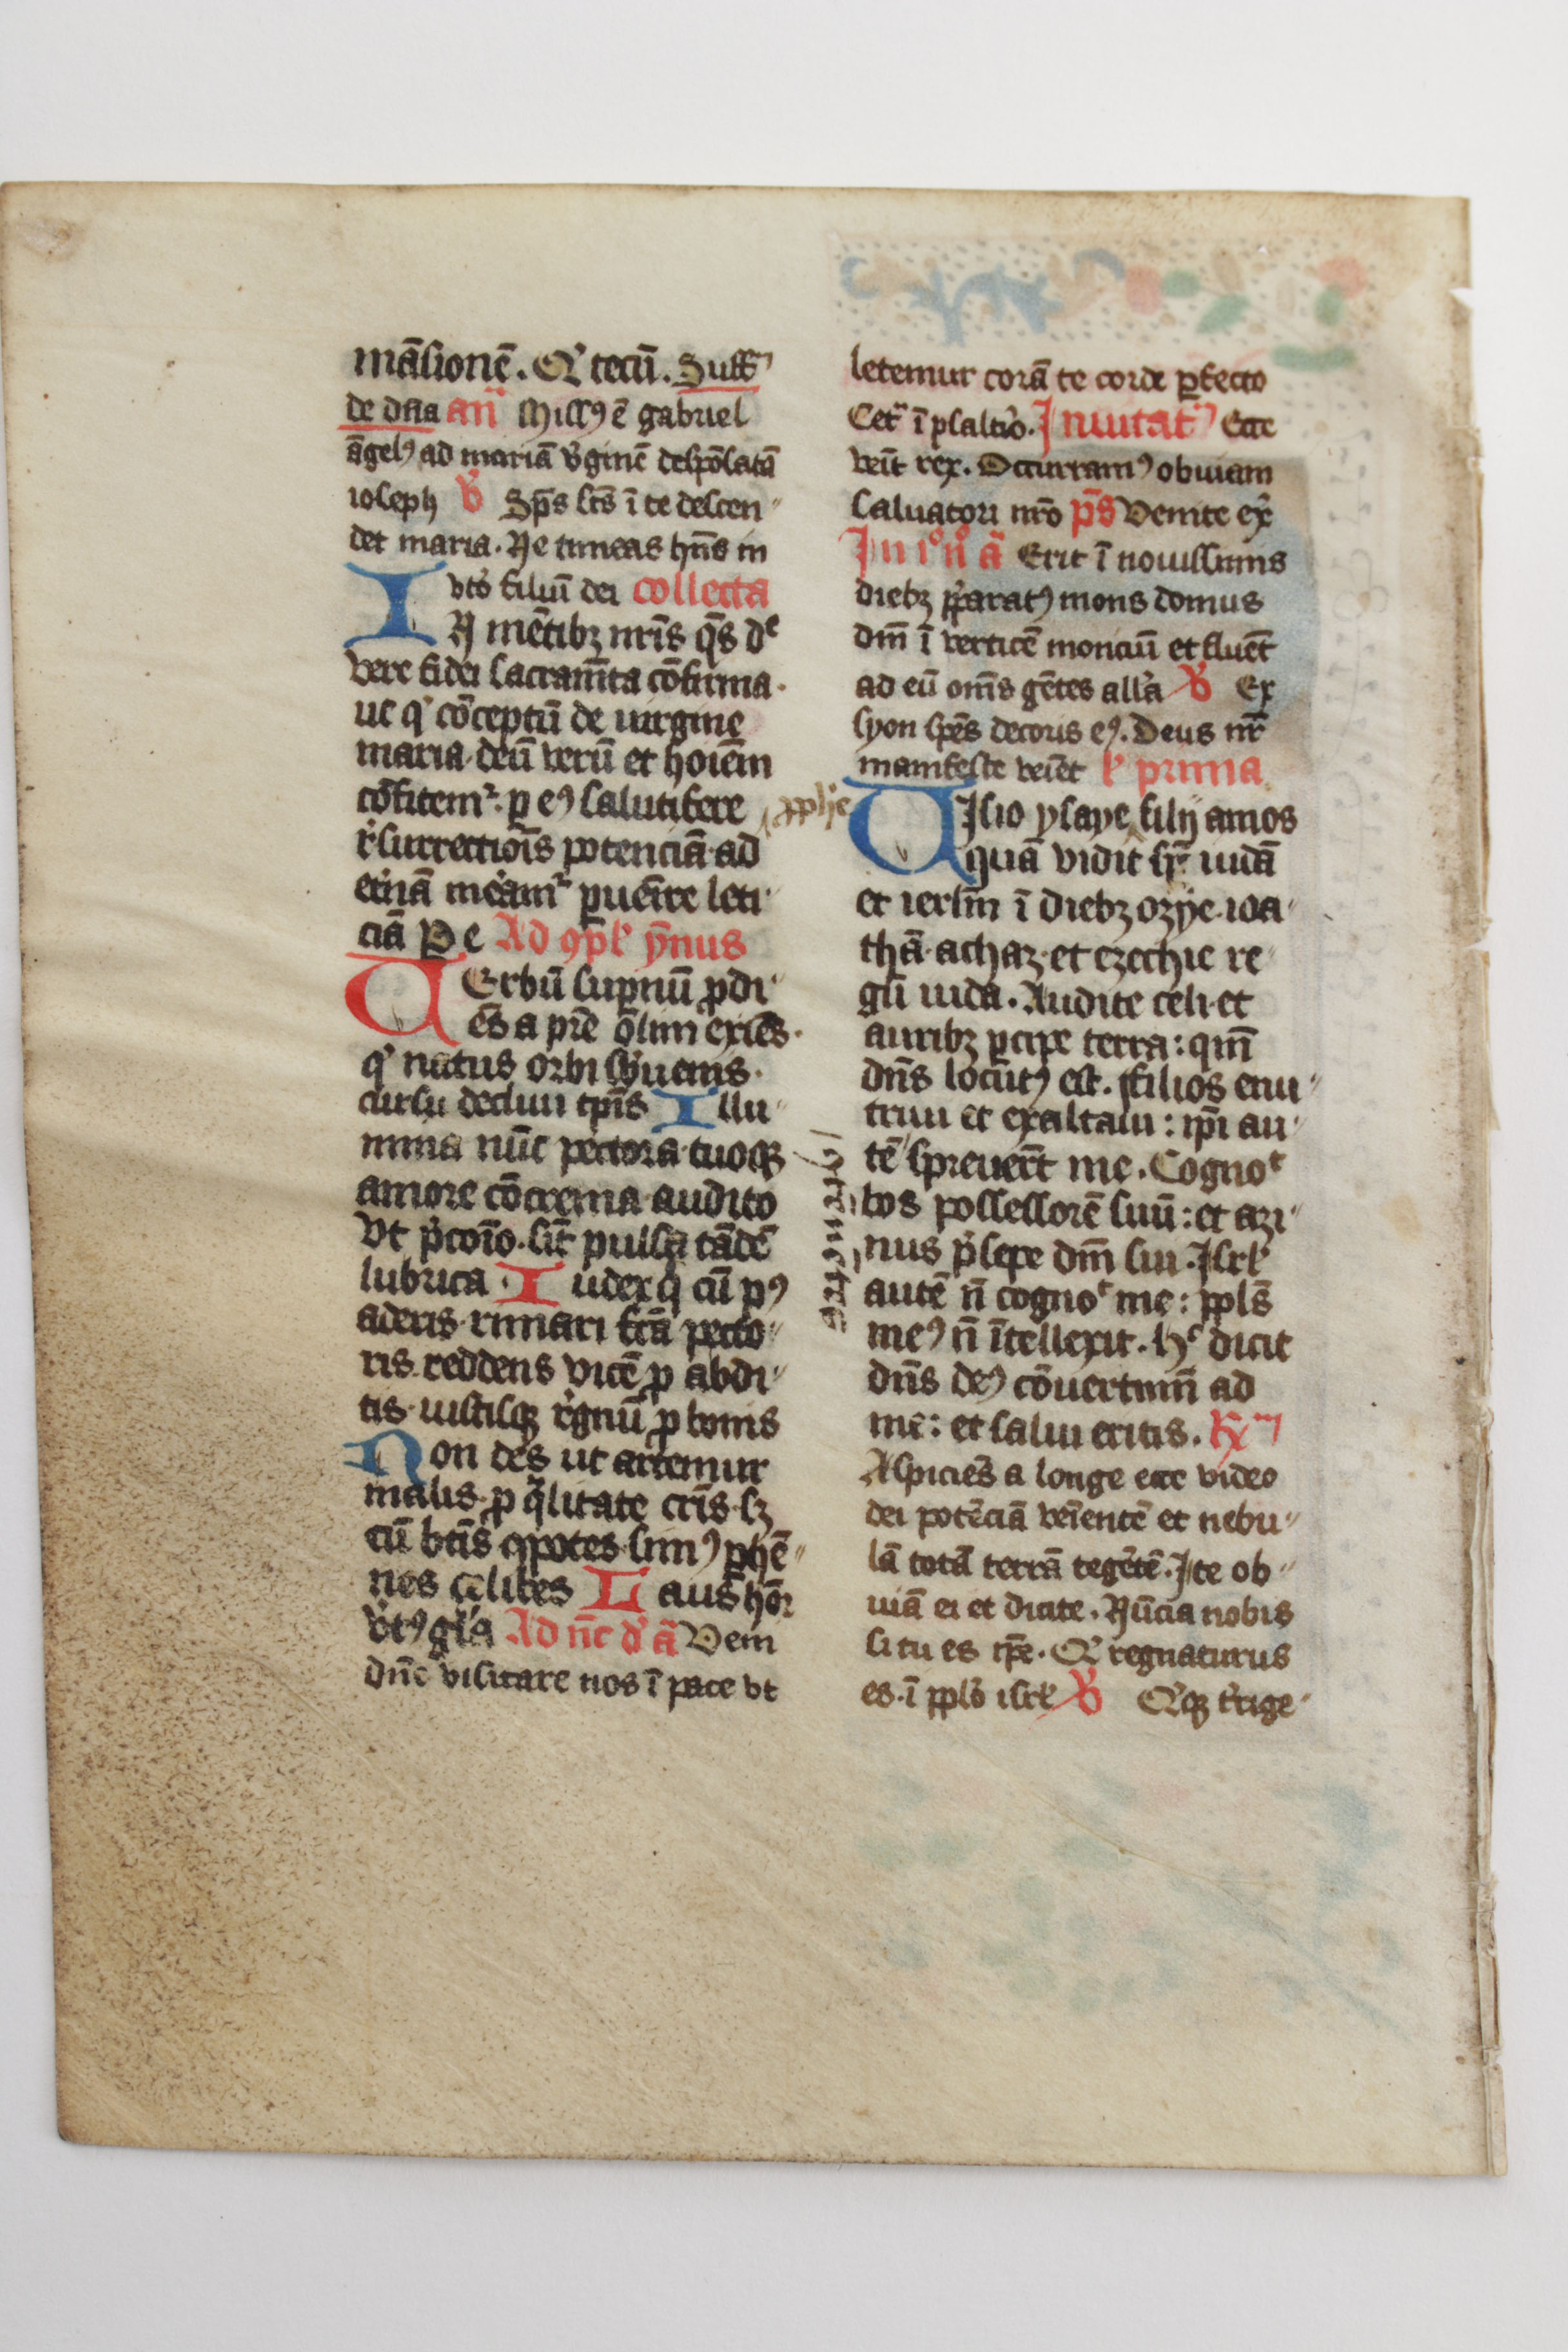 mā̄sionē. Qͥ tecū. Suffͬ
de dn̄a an̄ Missꝰ ē gabriel
āgelꝰ ad mariā vͥginē despōsatā
ioseph ℣ Sp̄s sc̄s ī te descen
det maria. Ne timeas hn̄s in
vtͦo filiū dei collecta
IN mētibꝫ nr̄is qs̄ dn̄e
vere fidei sacram̄ta cōfirma.
ut qͥ cōceptū de uirgine
maria. deū verū et hoīem
cōfitemͬ. ꝑ eꝰ salutifere
rͤsurrectiōis potenciā. ad
etͥnā meͣamͬ ꝑueīre leti
ciā Pe Ad ꝯpl̄ ẏnus
VErbū suꝑnū ꝓdi
ēs a pr̄e olim exiēs.
qͥ natus orbi sbͧuenis.
cursu decliui tp̄is Illu
mina nūc pectora. tuoqꝫ
amore cōcrema. audito
Vt p̄coīo. sīt pulsa tādē
lubrica. Iudex qͣ cū pꝰ
aderis. rimari fcā pecto
ris. reddens vicē ꝓ abdi
tis. iustisqꝫ rͤgnū ꝓ bonis
Non des ut artemur
malis. ꝓ qͣlitate crīs. sꝫ
cū btīs ꝯpotes. simꝰ ꝑhē
nes celibes Laus honͬ
vͥtꝰ gl̄a Ad n̄c dͥ ā Veni
dn̄e visitare nos ī pace vt
letemur corā te corde ꝑfecto
Cetͣ ī psaltͥo. Inuitatͬ Ecce
veīt rex. Occurramꝰ obuiam
saluatori nr̄o p̄s Venite exͥ
In iͦ nͦ ā Erit ī nouissimis
diebꝫ p̄paratꝰ mons domus
dn̄i ī verticē monciū et fluēt
ad eū om̄s gētes all̄a ℣ Ex
syon spēs decoris eꝰ. Deus nr̄
manifeste veīet l̄ prima
VIsio ysaye filij amos
ꝓph̄e
quā vidit sͬ iudā
et ierl̄m ī diebꝫ ozye. ioa
thā. achaz. et ezechie re
gū iuda. Audite celi. et
auribꝫ ꝑcipe terra: qm̄
dn̄s locūtꝰ est. Filios enu
triui et exaltaui: ip̄i au
tē spreuerūt me. Cognoͭ
bos possessorē suū: et azi
nus p̄sepe dn̄i sui. Isrl̄
autē n̄ cognoͭ me: ppl̄s
meꝰ n̄ ītellexit. Hͨ dicit
dn̄s deꝰ cōuertimī ad
me: et salui eritis. ℟
Aspiciēs a longe ecce video
dei potēciā veīentē et nebu
lā totā terrā tegētē. Ite ob
uiā ei et dicite. Nūcia nobis
si tu es ip̄e. Qͥ regnaturus
es. ī ppl̄o isrl̄ ℣ Qͥqꝫ tͤrige